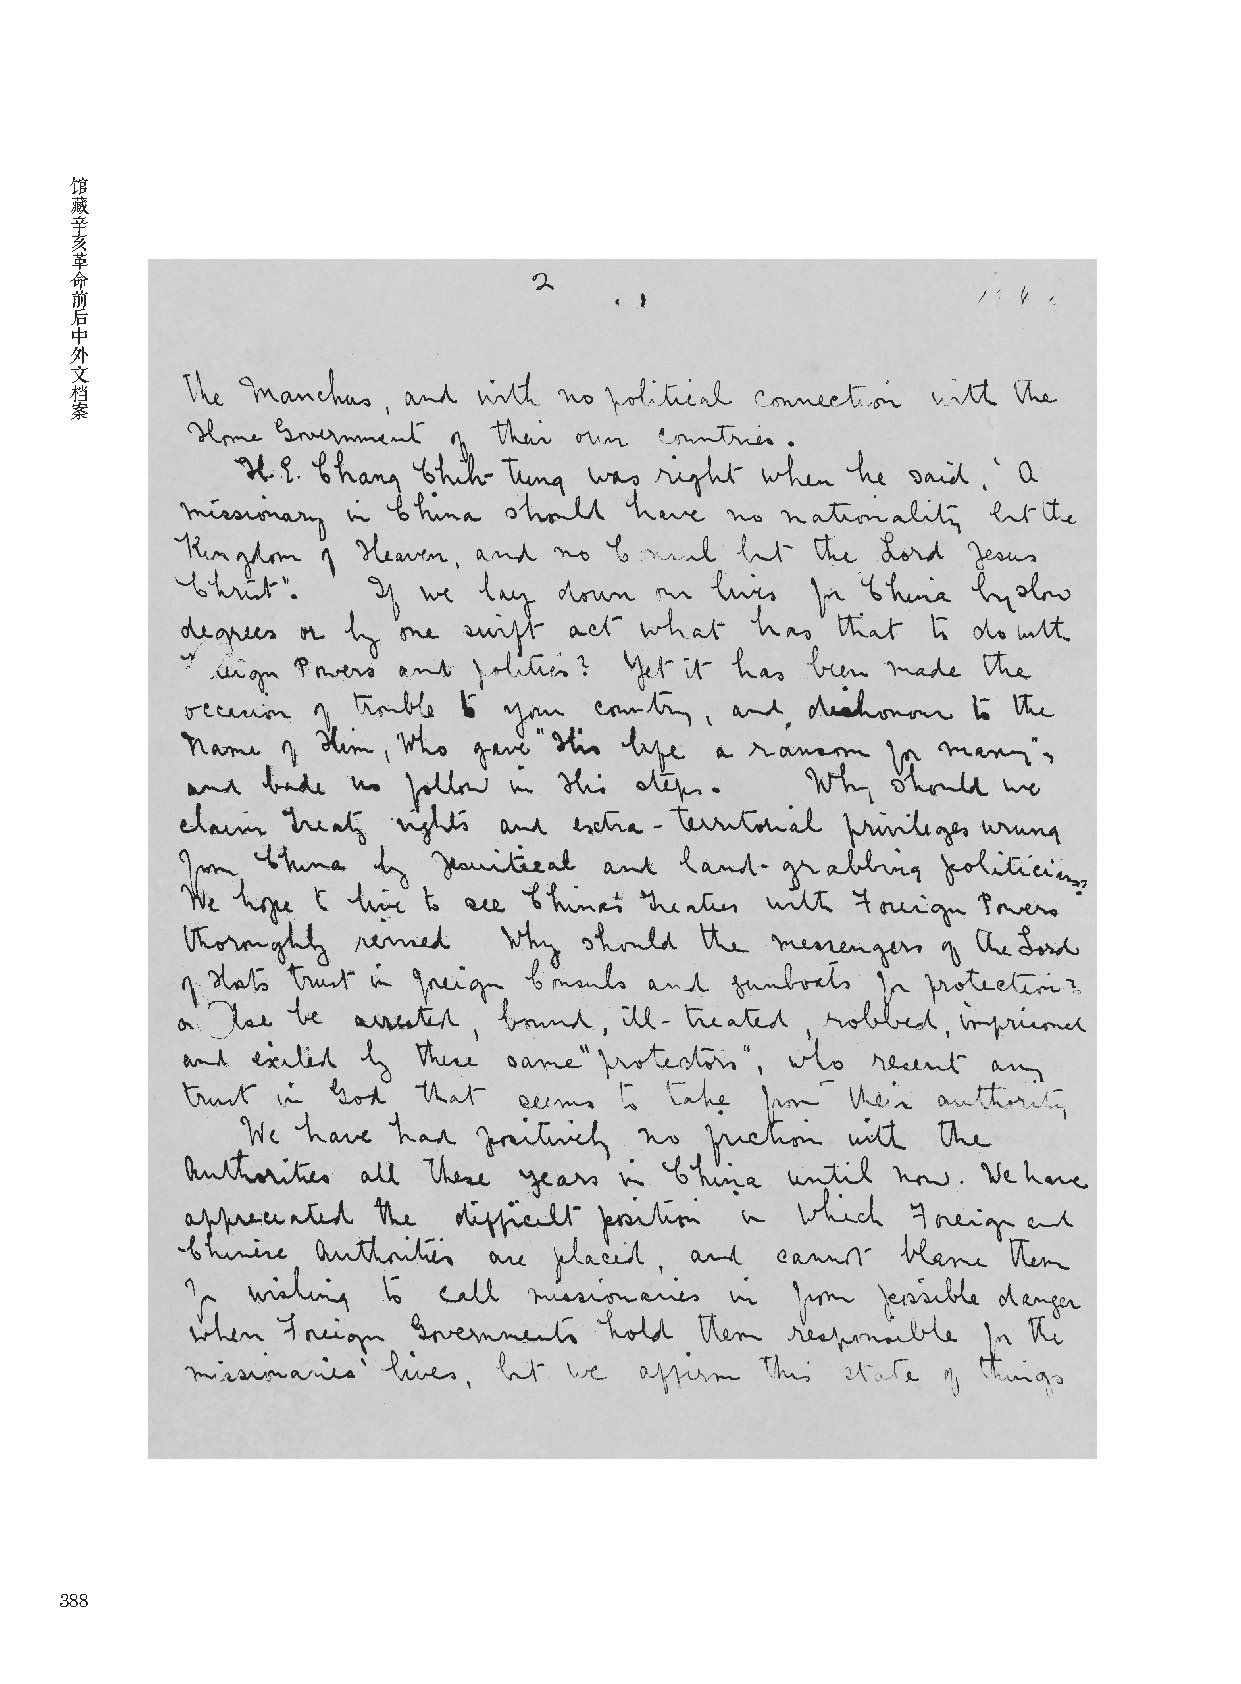 馆藏辛亥革命前后中外文档案
2
The Manchus, and with no political connection with the
Home Government of their own countries.
H.E. Chang Chih-tung was right when he said, 'A
missionary in China should have no nationality but the
Kingdom of Heaven, and no Consul but the Lord Jesus
Christ".  If we lay down our lives for China by slow
degrees or by one swift act what has that to do with
Foreign Powers and politics? Yet it has been made the
occasion of trouble to your country, and dishonour to the
Name of Him, Who gave "His life a ransom for many",
and bade us follow in His steps.  Why should we
claim Treaty rights and extra-territorial privileges wrung
from China by Jesuitical and land-grabbing politicians?
We hope to live to see China's Treaties with Foreign Powers
thoroughly revised  Why should the messengers of the Lord
of Hosts trust in foreign Consuls and gunboats for protection?
or else be arrested, bound, ill-treated, robbed, imprisoned
and exiled by these same "protectors", who resent any
trust in God that seems to take from their authority
We have had positively no friction with the
Authorities all these years in China until now. We have
appreciated the difficult position in which Foreign and
Chinese Authorities are placed, and cannot blame them
for wishing to call missionaries in from possible danger
when Foreign Governments hold them responsible for the
missionaries' lives, but we affirm this state of things
388